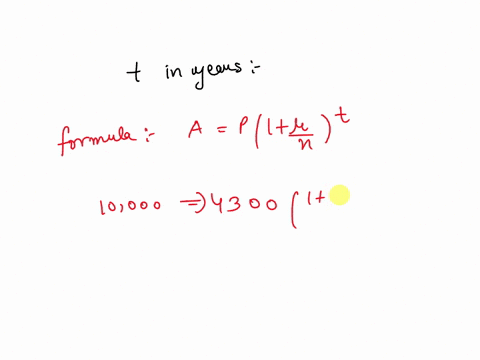 t in years :-
formula :- A = P(1+r/n)^t
10,000 => 4300 (1+